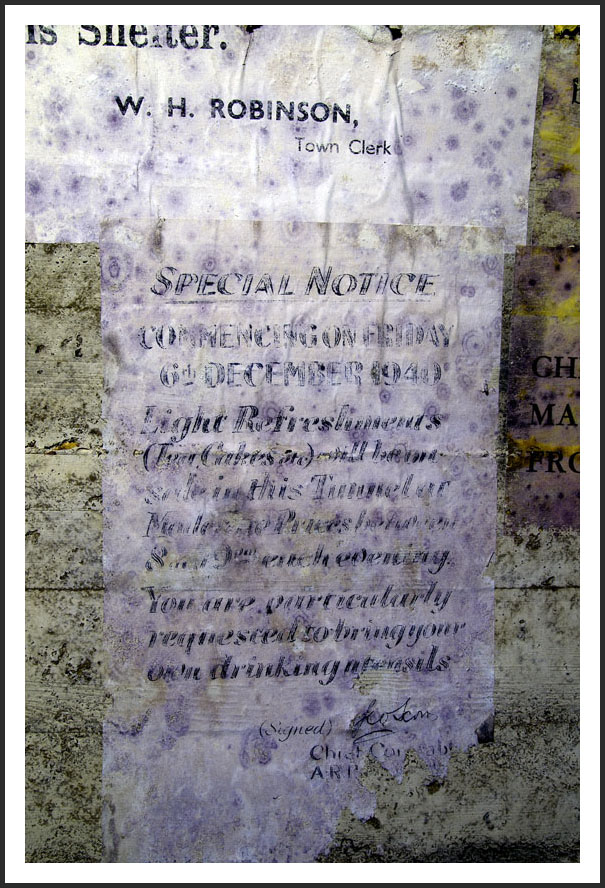 is Shelter.
W. H. ROBINSON,
Town Clerk
SPECIAL NOTICE
COMMENCING ON FRIDAY
6th DECEMBER 1940
Light Refreshments
(Tea, Cakes etc) will be on
sale in this Tunnel at
Moderate Prices between
8 and 9 pm each evening.
You are particularly
requested to bring your
own drinking utensils
(Signed)
Chief Constabl
A.R.P.
CH
MA
FRO